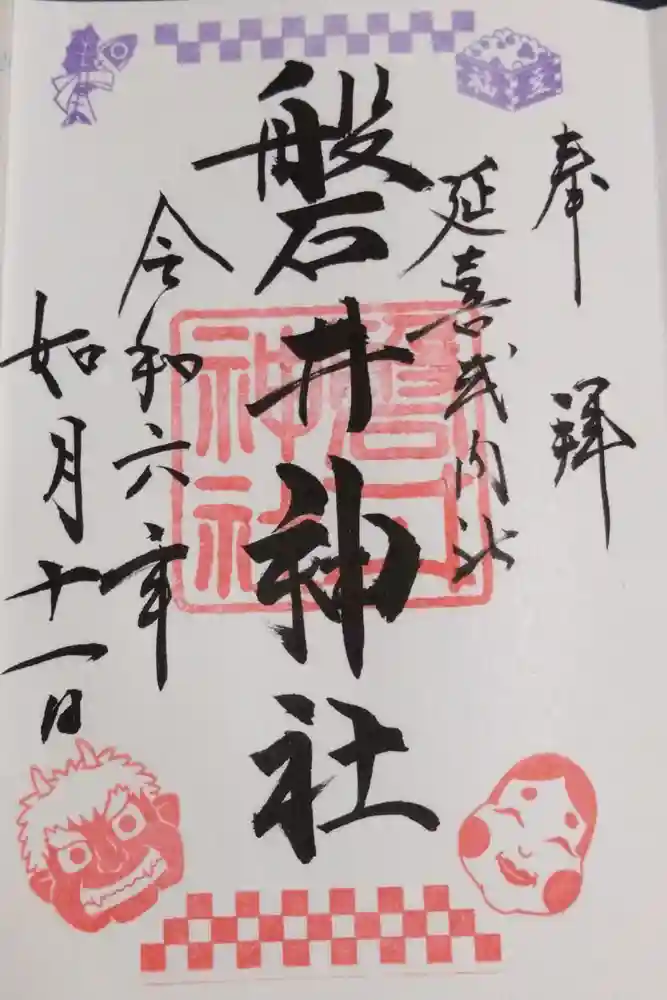 奉拝
延喜式内社
磐井神社
令和六年
如月十一日
福豆
磐井神社